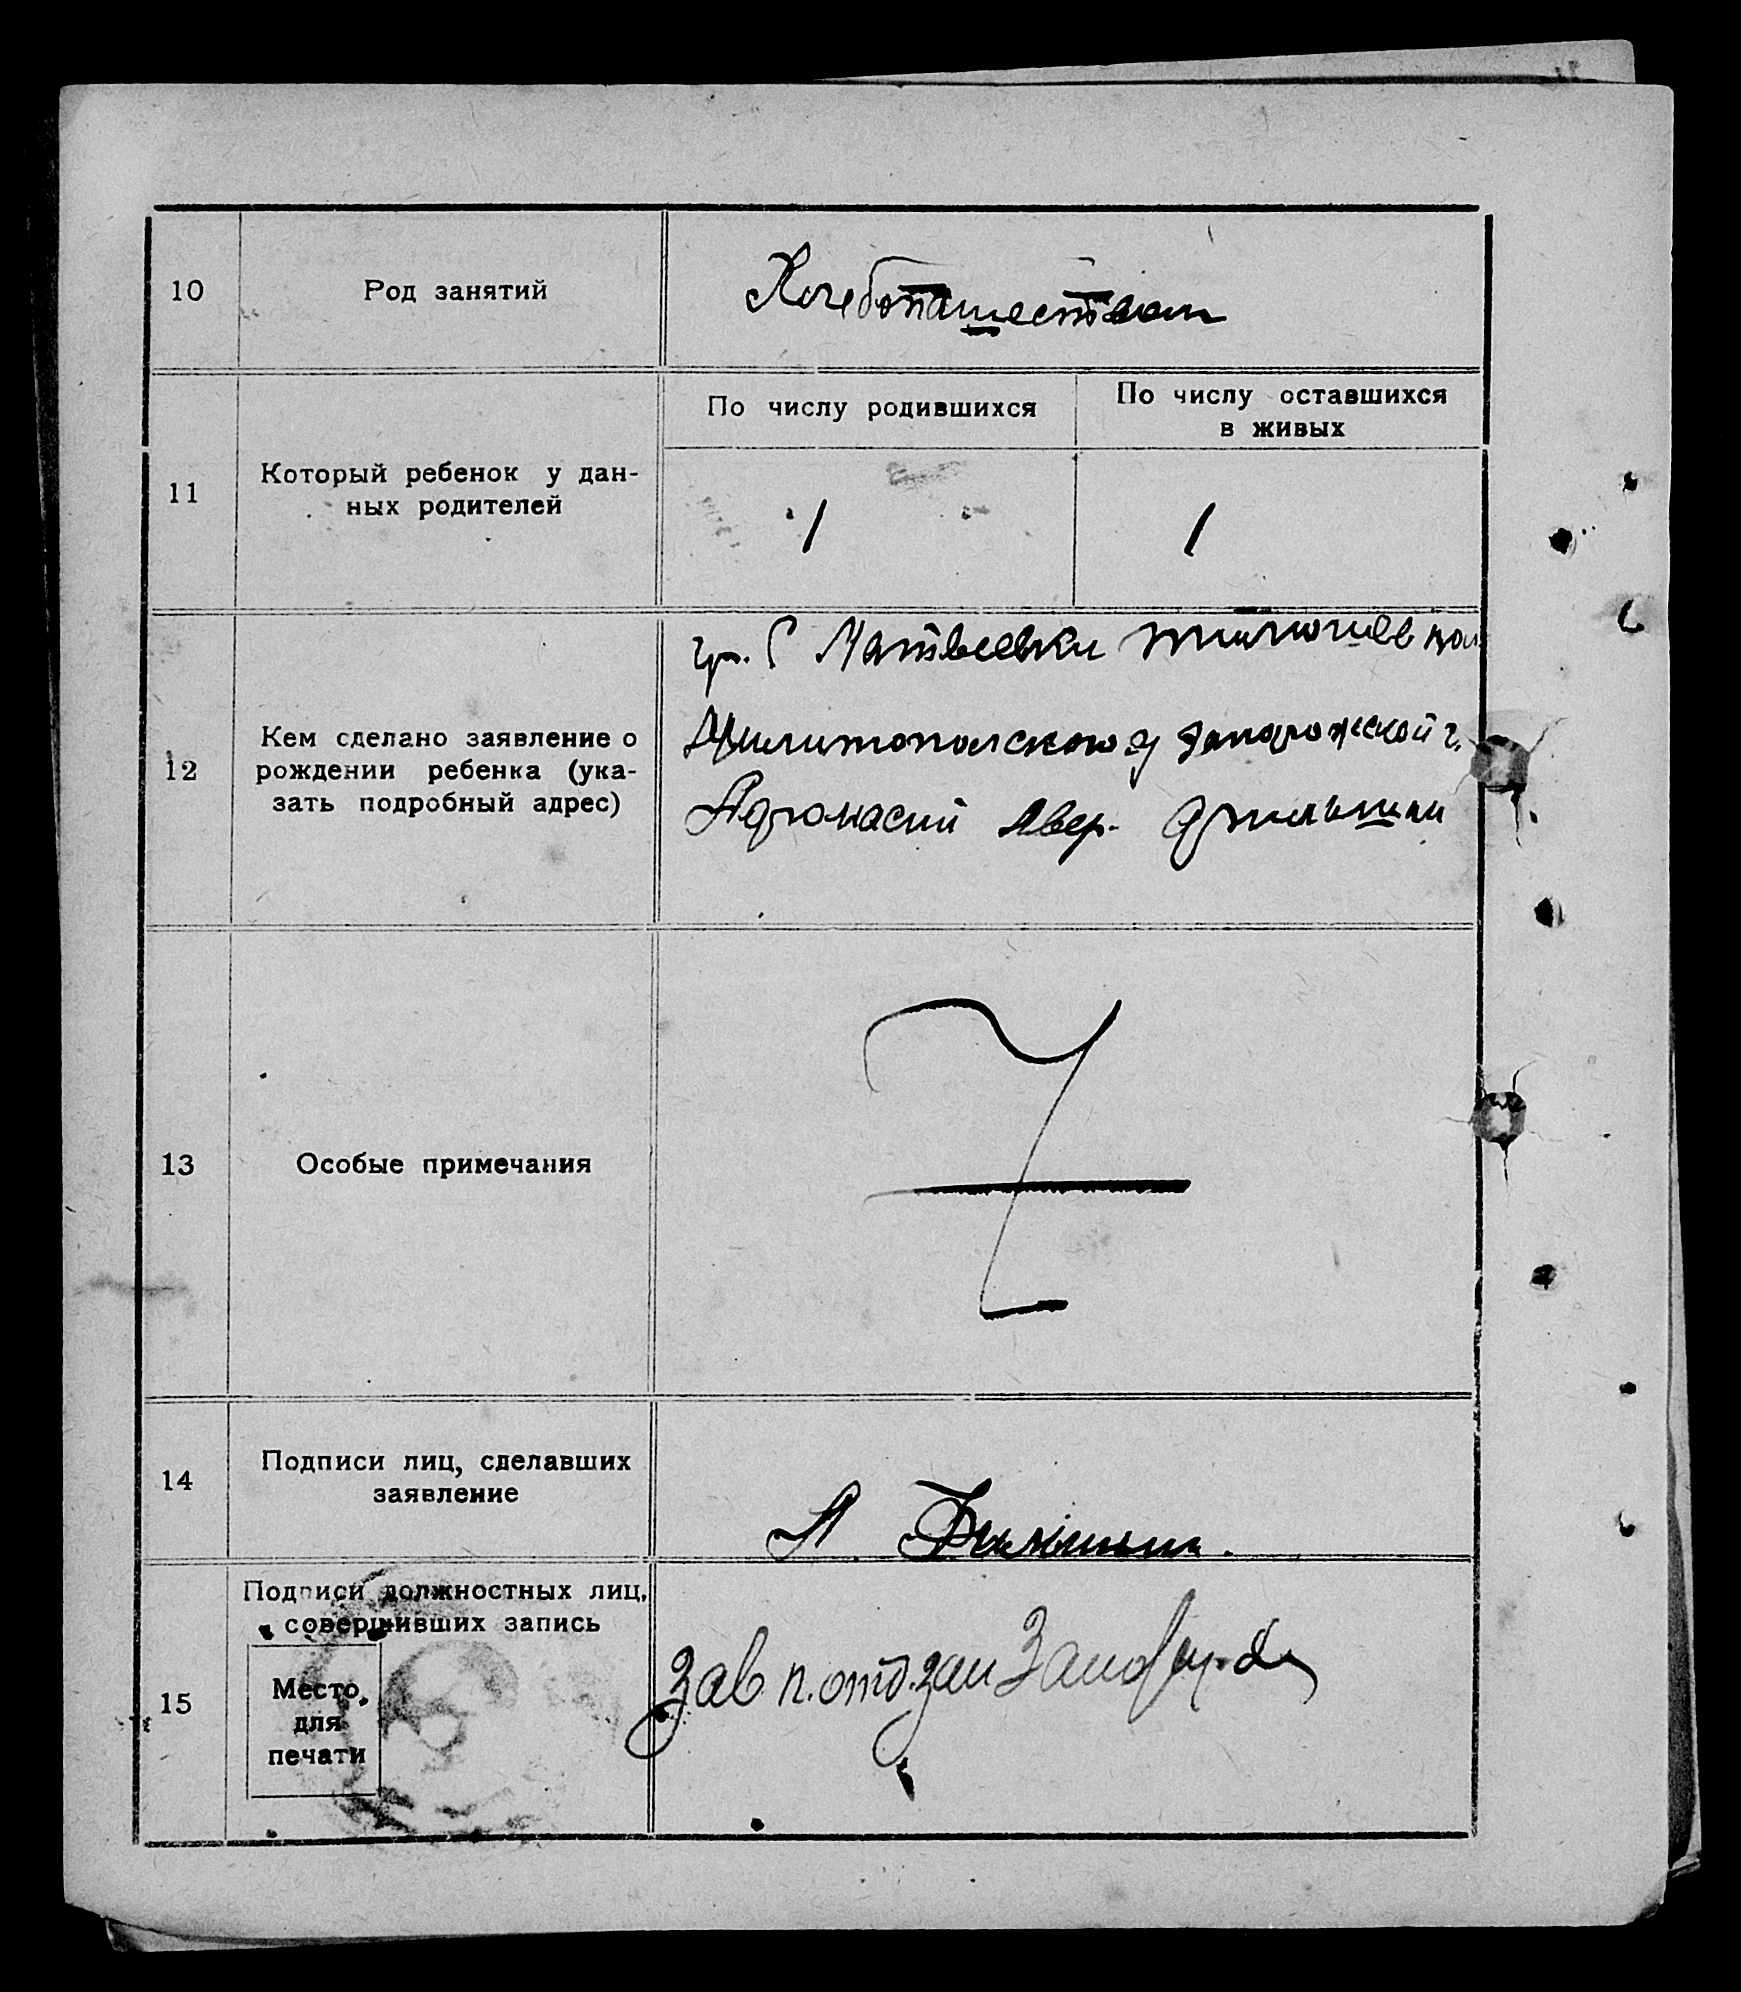 10
Род занятий
Хлебопашеством
11
Который ребенок у дан-
ных родителей
По числу родившихся
По числу оставшихся
в живых
1
1
12
Кем сделано заявление о
рождении ребенка (ука-
зать подробный адрес)
гр. С Матвеевки
Запорожской г.
Афонасий Авер.
13
Особые примечания
14
Подписи лиц, сделавших
заявление
А
15
Подписи должностных лиц,
совершивших запись
Место
для
печати
Зав. п. отд.